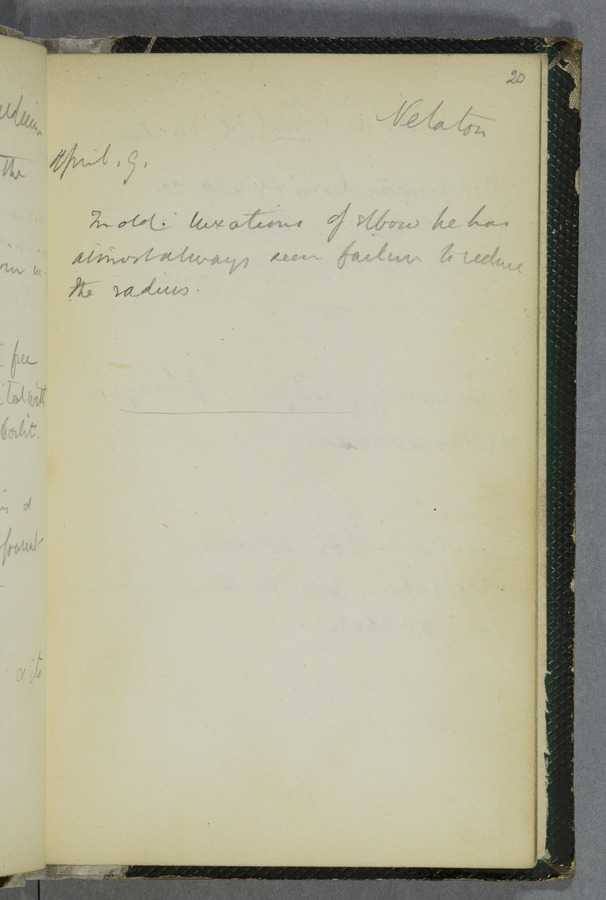 20
Nelaton
April. 9.
In old luxations of elbow he has
almost always seen failure to reduce
the radius.
the
free